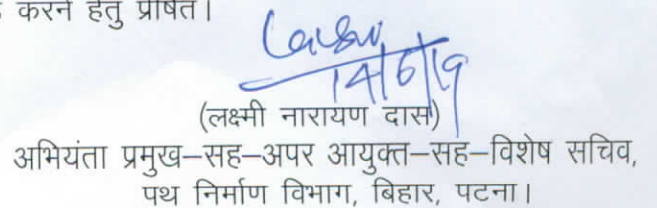 करने हेतु प्रेषित।
14/6/19
(लक्ष्मी नारायण दास)
अभियंता प्रमुख–सह–अपर आयुक्त–सह–विशेष सचिव,
पथ निर्माण विभाग, बिहार, पटना।